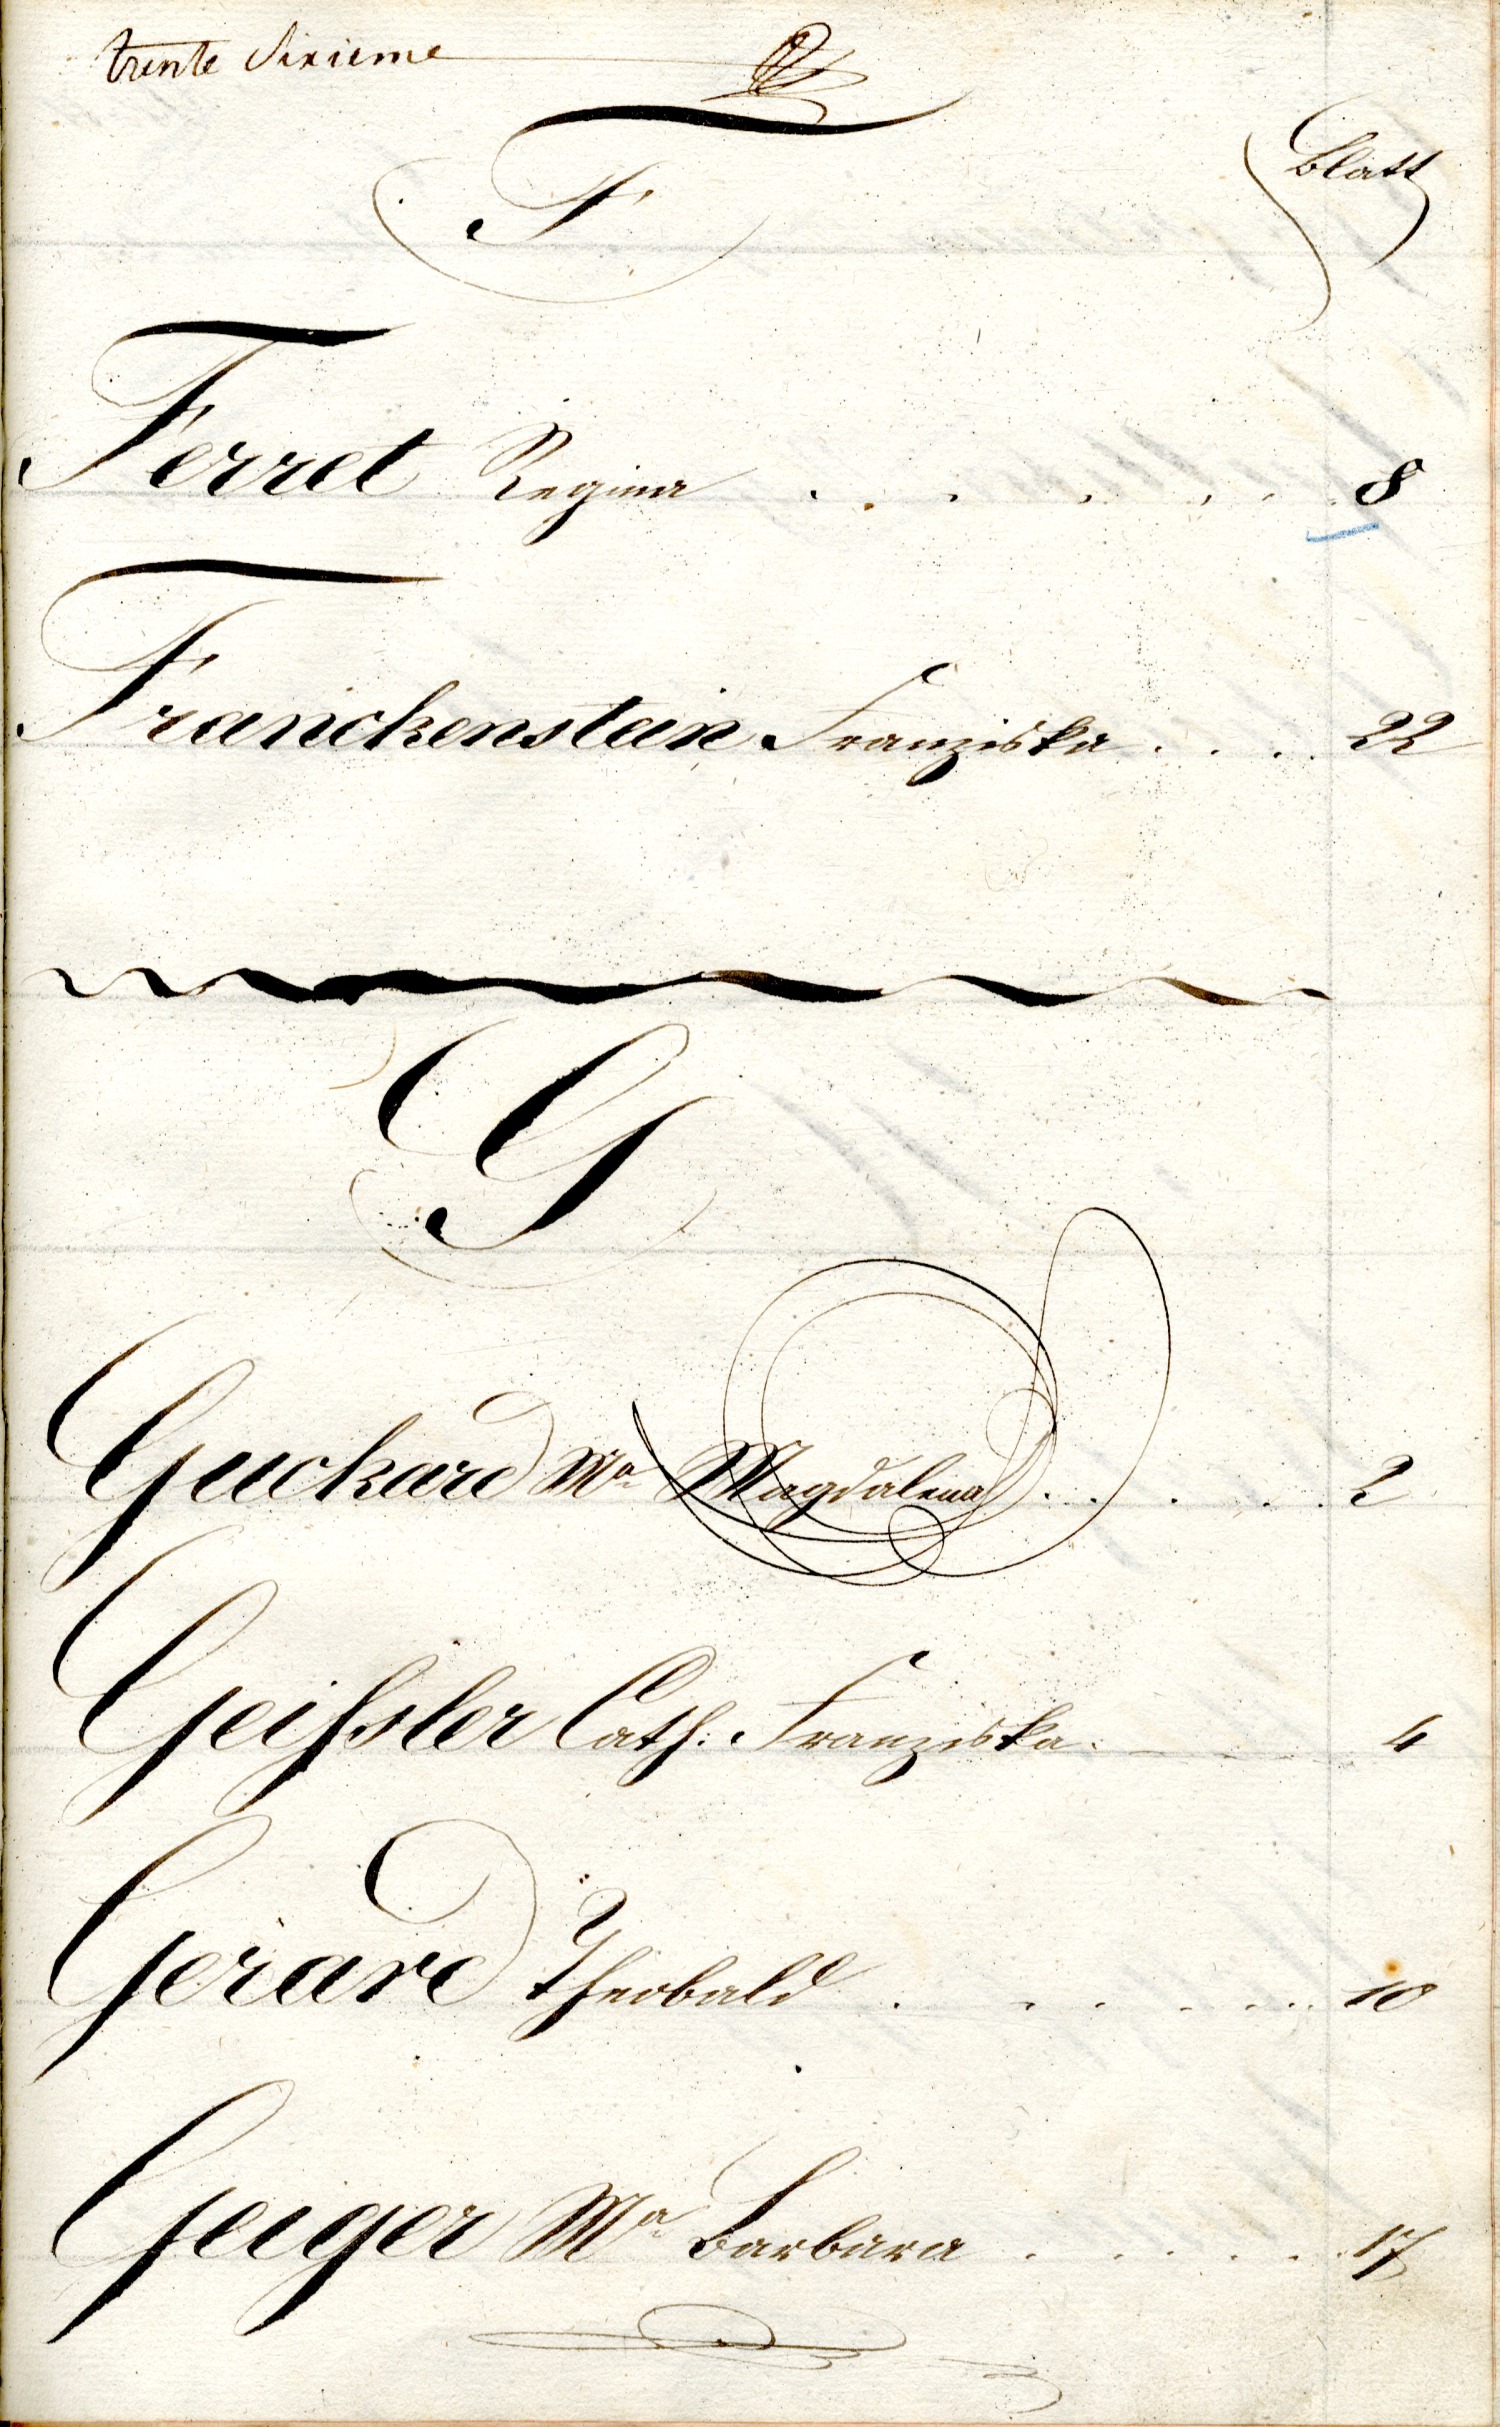 trente sixieme
F
Blatt
Ferret Regina . . . . . . 8
Franckenstein Franziska . . . . 22
G
Guckard Ma Magdalena . . . . . 2
Geissler Cath: Franziska. 4
Gerard Theobald . . . . . . 10
Geiger Ma Barbara . . . . . . 17